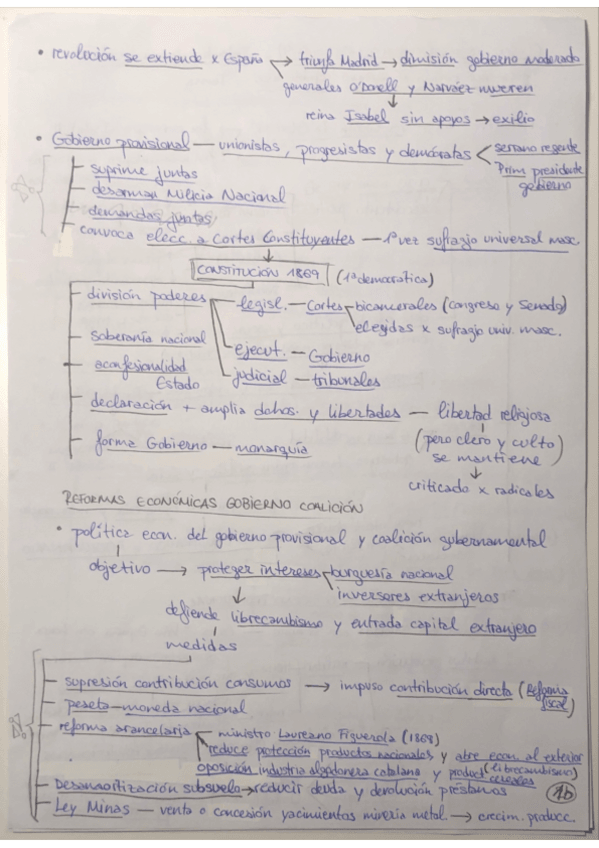 • revolución se extiende x España → triunfa Madrid → dimisión gobierno moderado
generales O'Donell y Narváez mueren
reina Isabel sin apoyos → exilio
• Gobierno provisional — unionistas, progresistas y demócratas < Serrano regente
Prim presidente gobierno
- suprime juntas
- desarman Milicia Nacional
- demandas juntas
- convoca elecc. a Cortes Constituyentes — 1ª vez sufragio universal masc.
CONSTITUCIÓN 1869 (1ª democrática)
- división poderes - legisl. — Cortes - bicamerales (Congreso y Senado)
elegidas x sufragio univ. masc.
- soberanía nacional
ejecut. — Gobierno
- aconfesionalidad Estado
judicial — tribunales
- declaración + amplia dchos. y libertades — libertad religiosa
(pero clero y culto) se mantiene
- forma Gobierno — monarquía
criticado x radicales
REFORMAS ECONÓMICAS GOBIERNO COALICIÓN
• política econ. del gobierno provisional y coalición gubernamental
objetivo → proteger intereses - burguesía nacional
inversores extranjeros
defiende librecambismo y entrada capital extranjero
medidas
- supresión contribución consumos → impuso contribución directa (Reforma fiscal)
- peseta — moneda nacional
- reforma arancelaria < ministro Laureano Figuerola (1869)
reduce protección productos nacionales y abre econ. al exterior
(librecambismo)
oposición industria algodonera catalana y product. cereales
- Desamortización subsuelo → reducir deuda y devolución préstamos
- Ley Minas — venta o concesión yacimientos minería metal. → crecim. producc.
1b